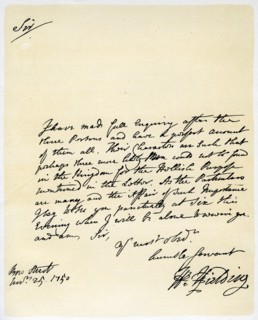 Sir
I have made full Enquiry after the
three Persons and have a perfect account
of them all. Their Characters are such that
perhaps three more likely Men could not be found
in the Kingdom for the Hellish Purpose
mentioned in the Letter. As the Particulars
are many and the Affair of such Importance
I beg to see you punctually at Six this
Evening when I will be alone to receive you
and am, Sir,
Yr most Obdt
humble Servant
Hy Fielding
Bow Street
25 1750